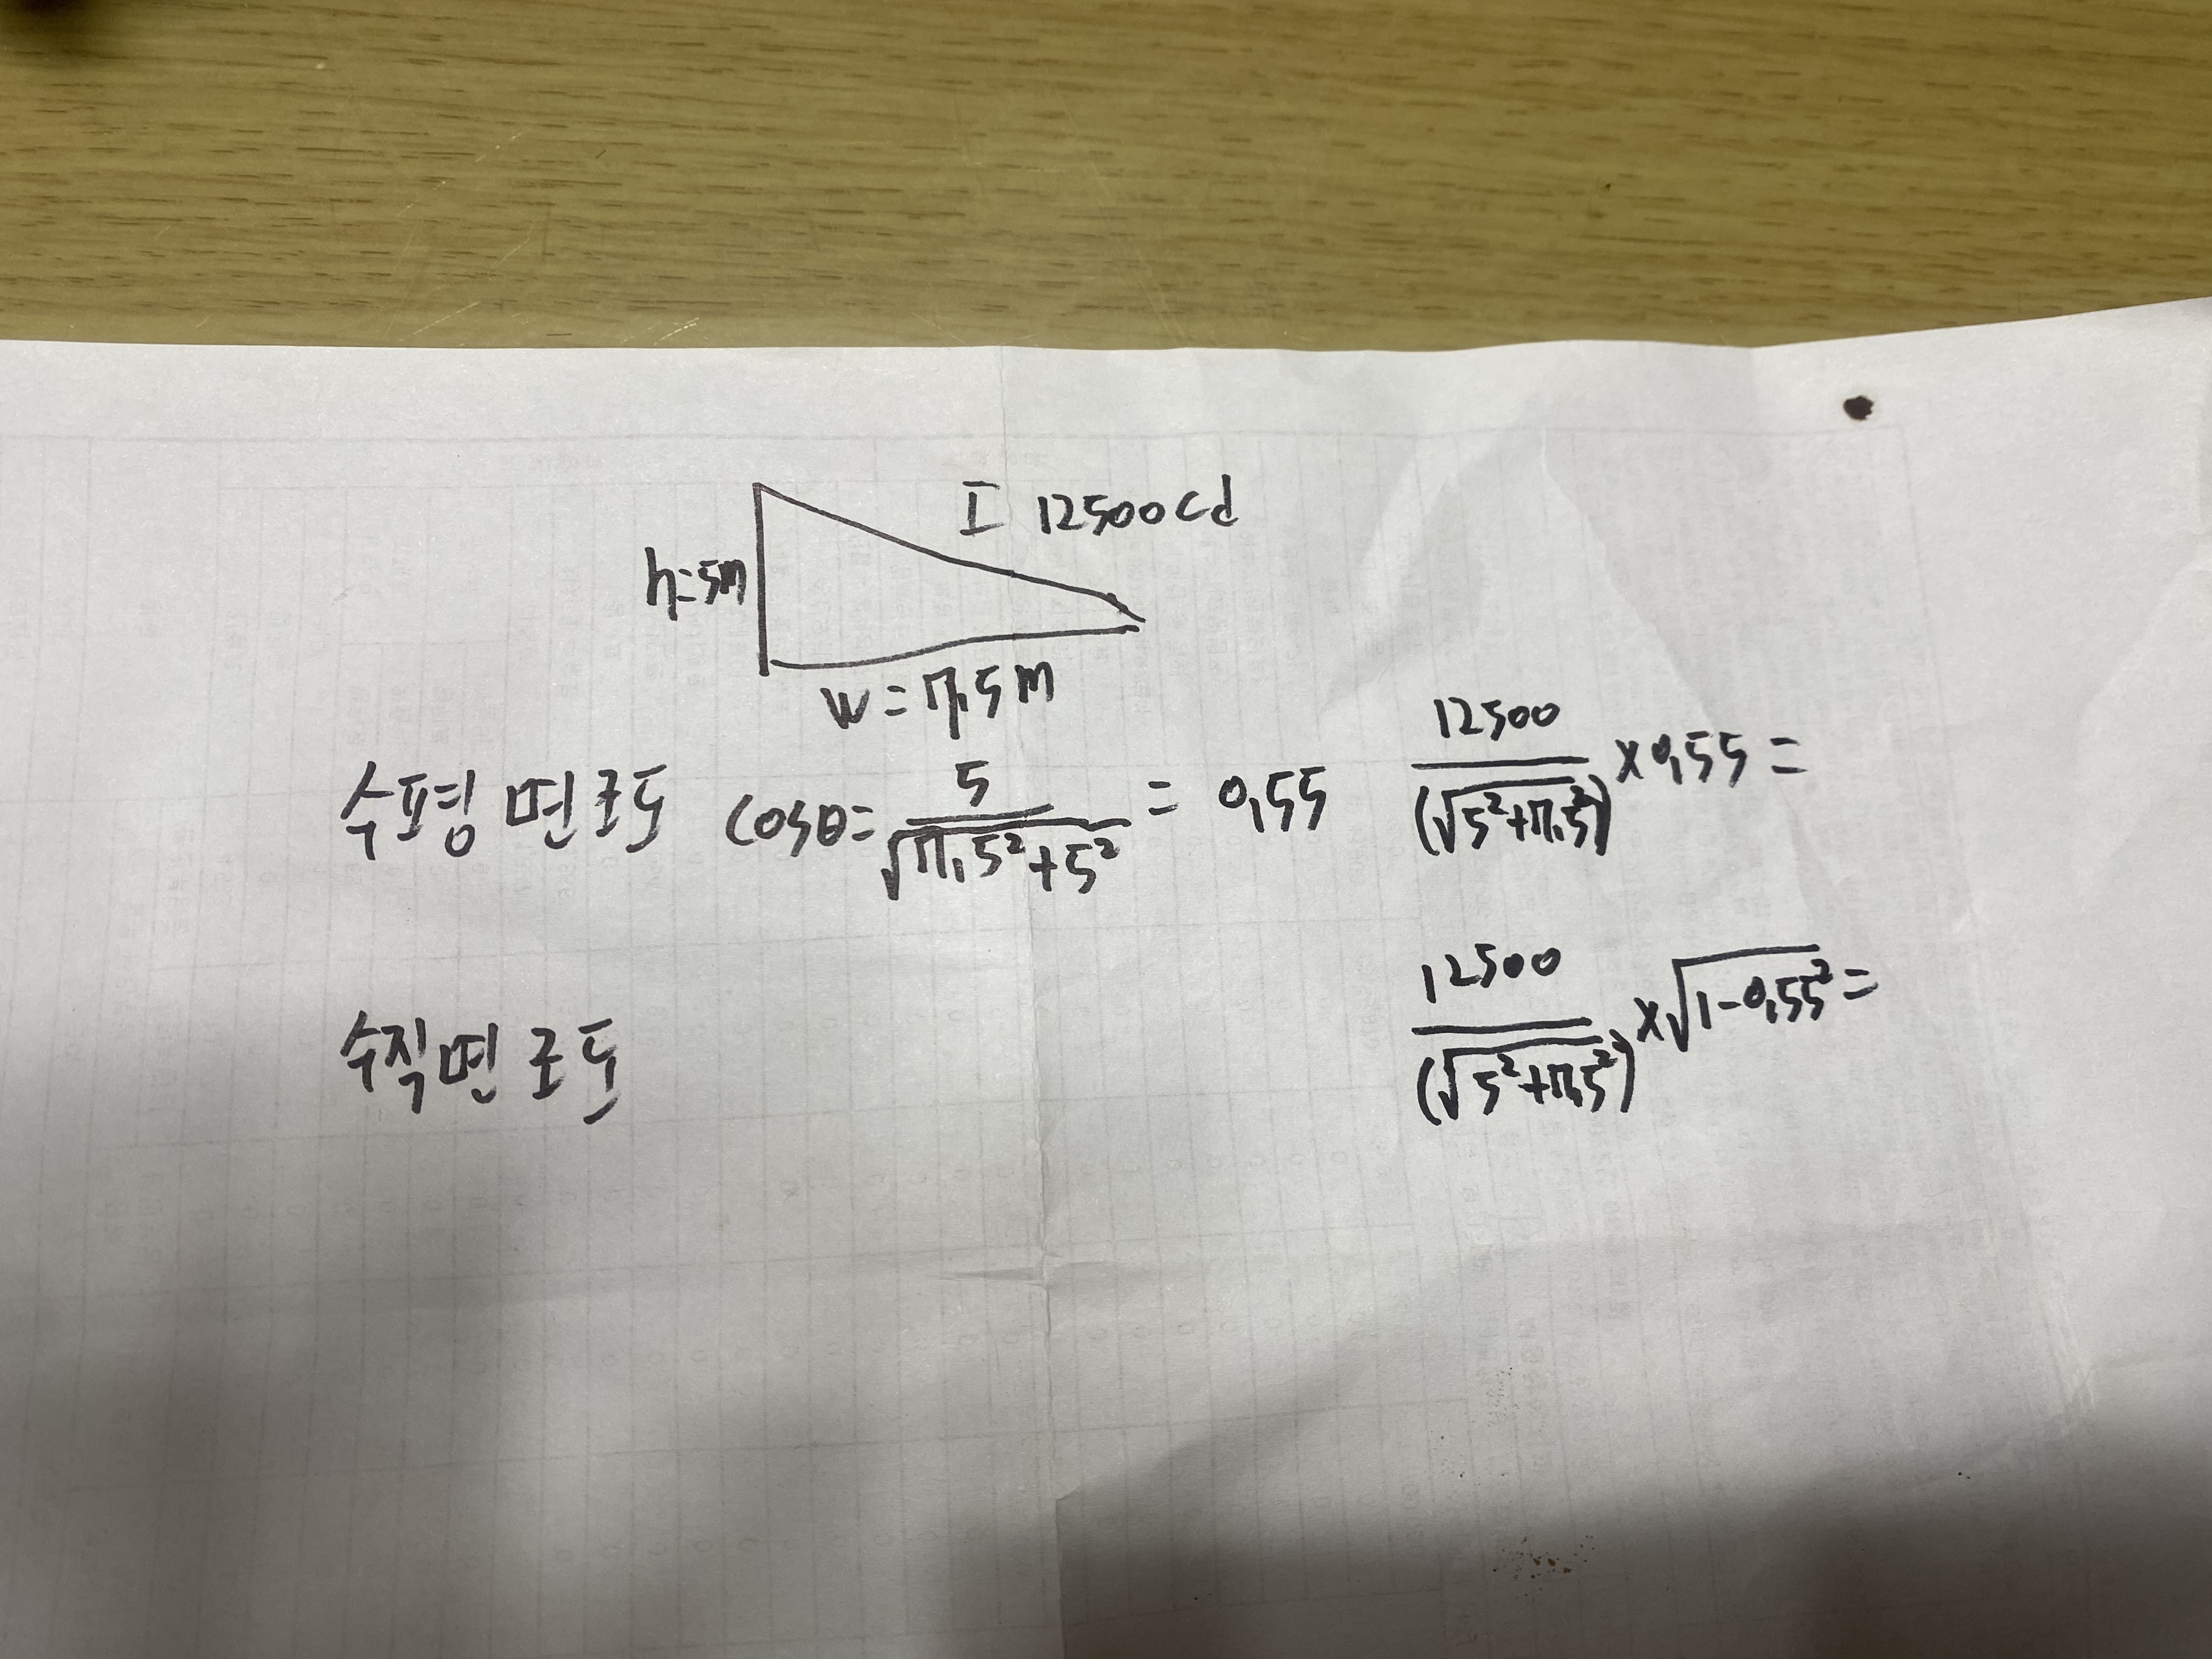 I 12500cd
h=5m
w=7.5m
수평면조도 cosθ=5/√(7.5²+5²) = 0.55 12500/(√5²+7.5²) ×0.55 =
수직면조도 12500/(√5²+7.5²) ×√(1-0.55²) =